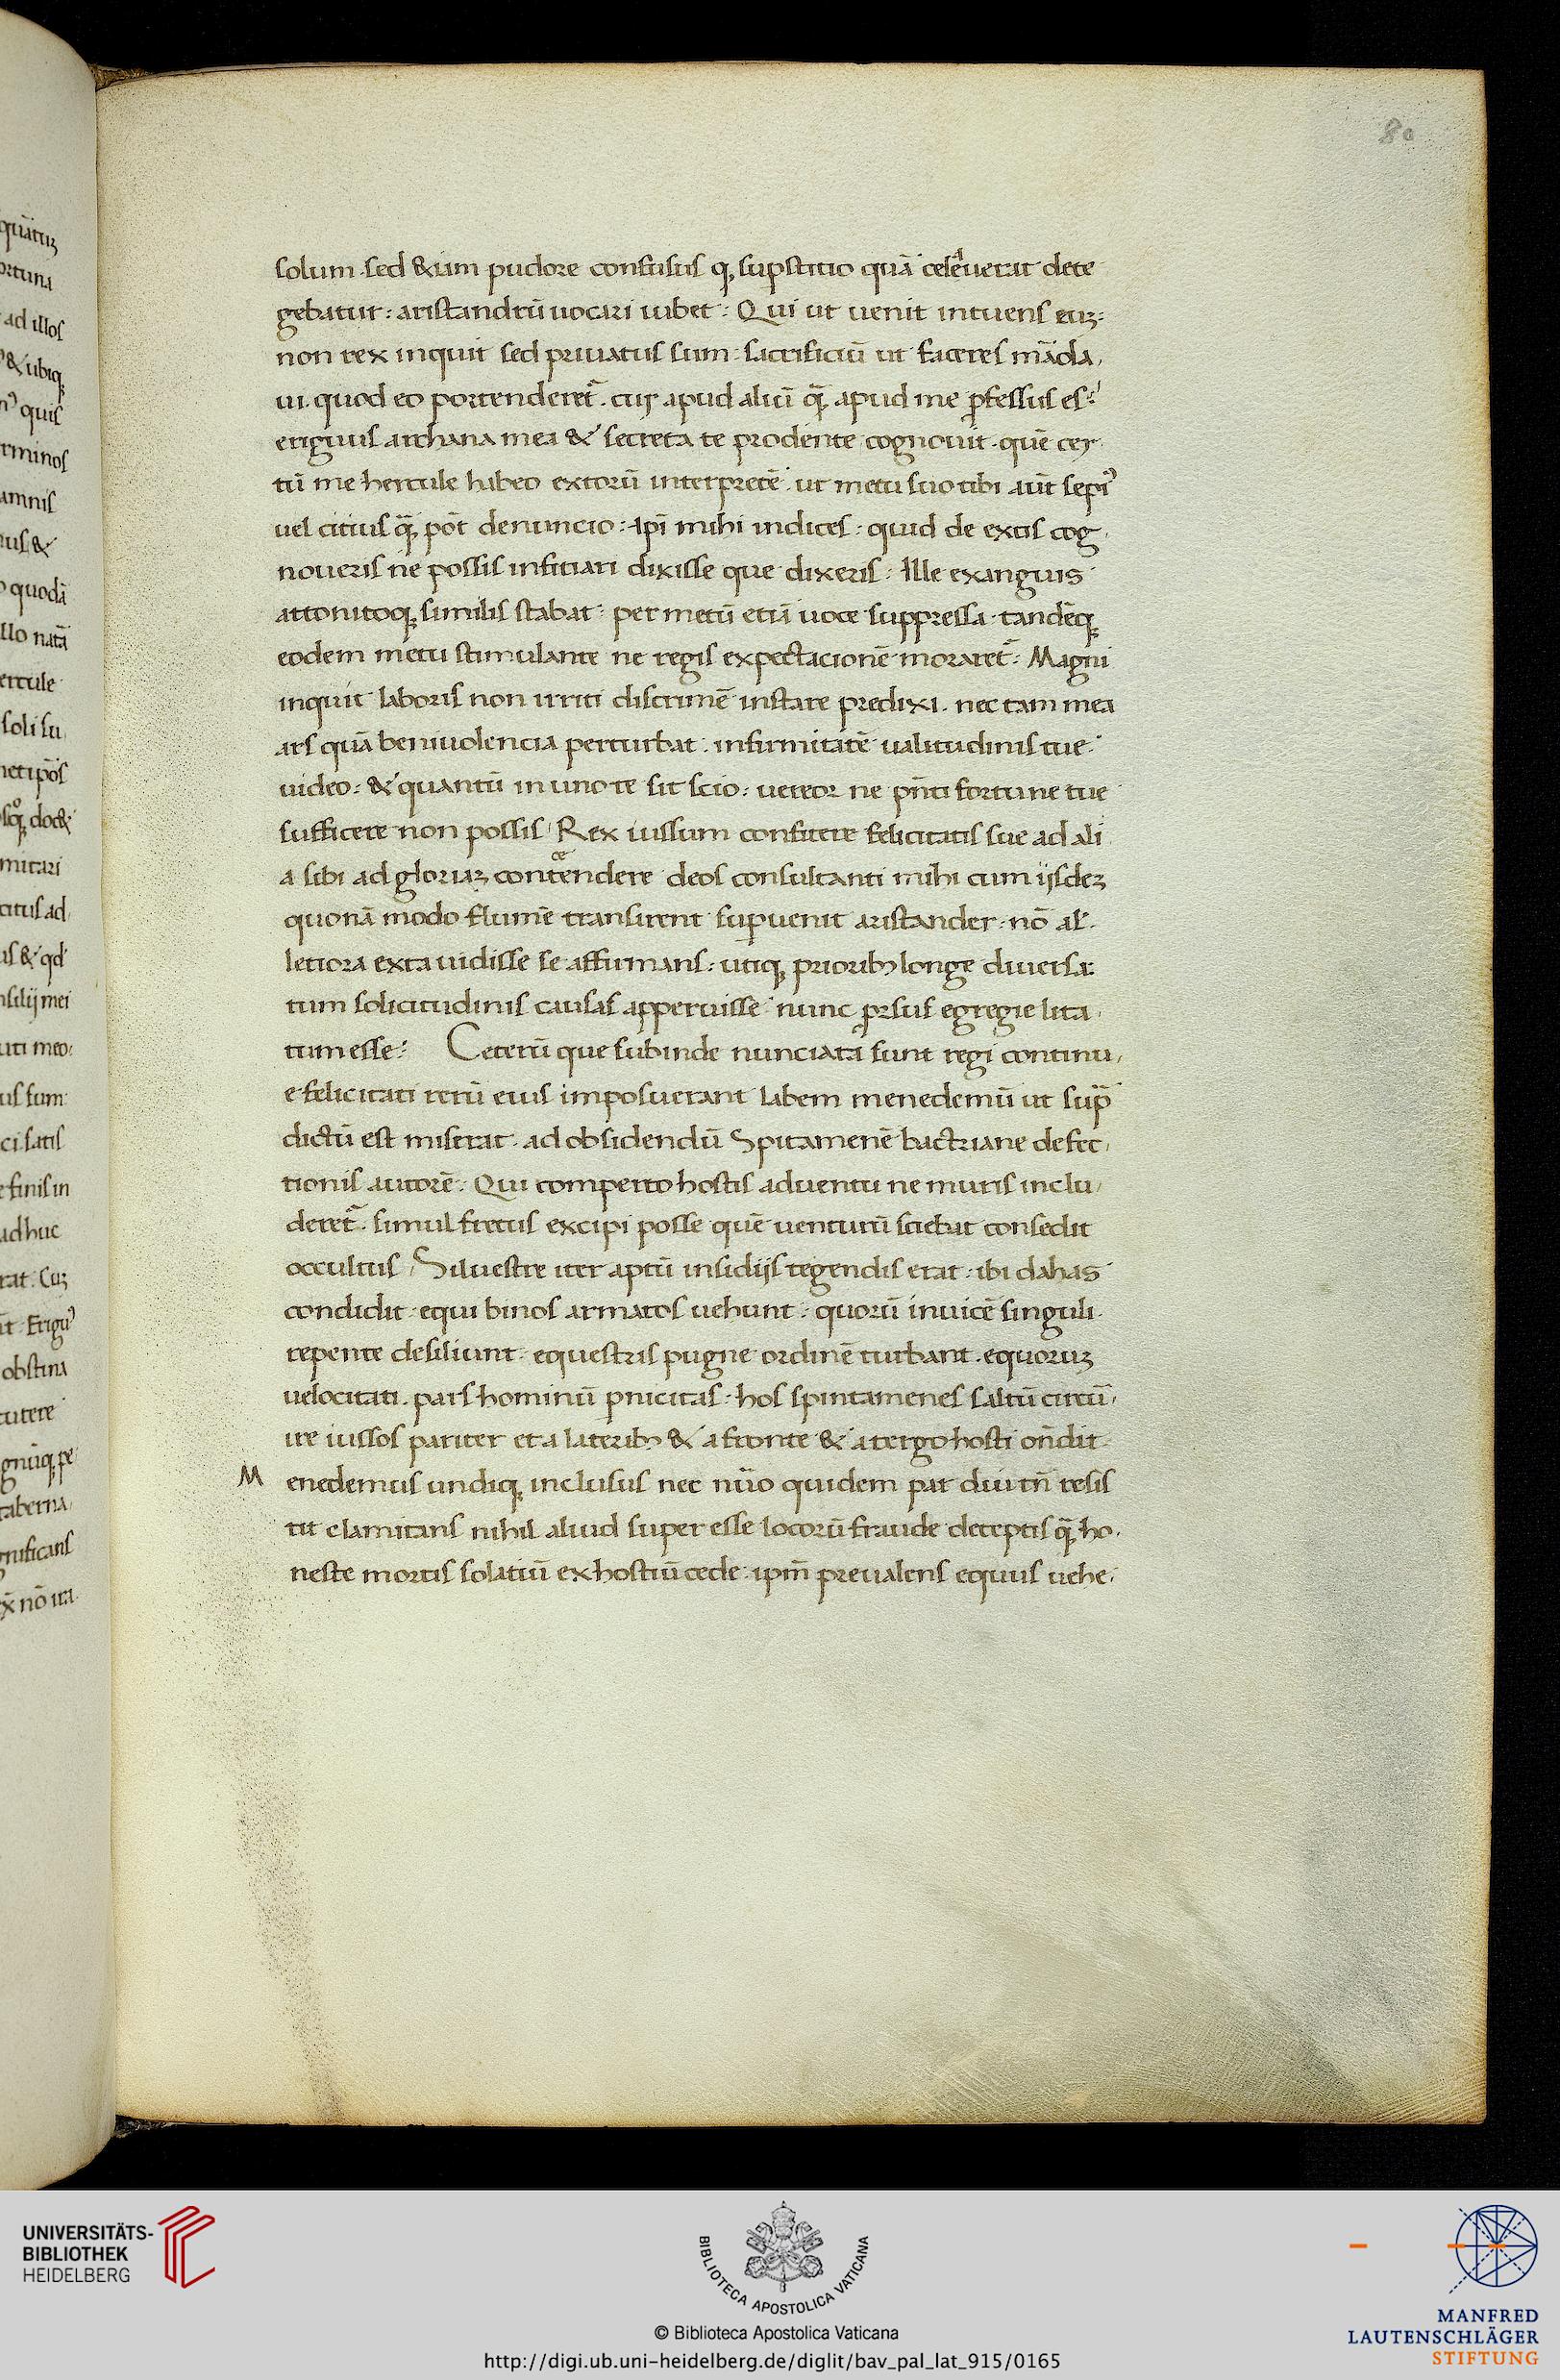 80
solum sed &iam pudore confusus q; supstitio quā celaverat dete
gebatur: aristandrū uocari iubet: Qui ut uenit intuens euʒ:
non rex inquit sed priuatus sum: sacrificiū ut faceres māda,
ui. quod eo portenderet᷑. cur apud aliū q̄ apud me ꝓfessus es:
eriguus archana mea & secreta te prodente cognouit. quē cer
tū me hercule habeo extorū interpretē ut metu suo tibi aūt sepi᾽
uel citius q̄ pōt denuncio: ipī mihi indices: quid de extis cog,
noueris ne possis infitiari dixisse que dixeris: Ille exanguis
attonitoq; similis stabat: per metū etiā uoce suppressa. tandēq;
eodem metu stimulante ne regis expectacionē moraret᷑: Magni
inquit laboris non irriti discrimē instare predixi. nec tam mea
ars quā beniuolencia perturbat. infirmitatē ualitudinis tue
uideo: & quantū in uno te sit scio: uereor ne pn̄ti fortune tue
sufficere non possis. Rex iussum confitere felicitatis sue ad ali
a sibi ad gloriaʒ contendere deos consultanti mihi cum ijsdeʒ
ce
quonā modo flumē transirent suꝑuenit aristander. nō al.
letiora exta uidisse se affirmans: utiq; prioribʒ longe diuersa:
tum solicitudinis causas apperuisse nunc ꝓrsus egregie lita,
tum esse: Ceterū que subinde nunciata sunt regi continu,
e felicitati rerū eius imposuerant labem menedemū ut sup̄
dictū est miserat. ad obsidendū Spitamenē bactriane defec,
tionis autorē. Qui comperto hostis aduentu ne muris inclu,
deret᷑. simul fretus excipi posse quē uenturū sciebat consedit
occultus. Siluestre iter aptū insidijs tegendis erat: ibi dahas
condidit. equi binos armatos uehunt: quorū inuicē singuli.
repente desiliunt. equestris pugne ordinē turbant. equoruʒ
uelocitati. pars hominū ꝑnicitas. hos spintamenes saltū circū,
ire iussos pariter et a lateribʒ & a fronte & a tergo hosti on̄dit
M enedemus undiq; inclusus nec nūo quidem par diu tn̄ resis
tit clamitans nihil aliud super esse locorū fraude deceptis q̄ ho,
neste mortis solatiū ex hostiū cede. ipm̄ preualens equus uehe,
quātuʒ
ortuna
ad illos
& ubiq;
quis
rminos
amnis
us &
quodā
llo natā
ercule
soli su,
doc&
mitari
citus ad,
is & qd
silij mei
uti meo:
us sum
ci satis
e finis in
adhuc
rat. Cuʒ
obstina
cutere
taberna,
gnificans
x̄ nō ita
UNIVERSITÄTS-
BIBLIOTHEK
HEIDELBERG
BIBLIOTECA APOSTOLICA VATICANA
© Biblioteca Apostolica Vaticana
http://digi.ub.uni-heidelberg.de/diglit/bav_pal_lat_915/0165
MANFRED
LAUTENSCHLÄGER
STIFTUNG